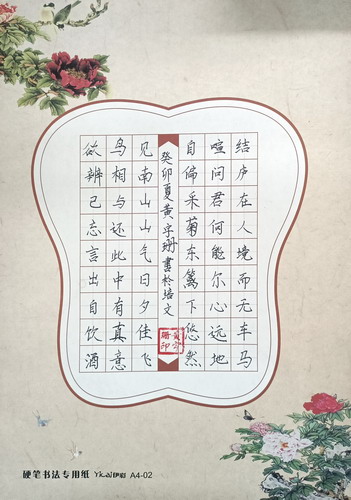 结庐在人境而无车马
喧问君何能尔心远地
自偏采菊东篱下悠然
癸卯夏黄宇珊書於培文
黄宇珊印
见南山山气日夕佳飞
鸟相与还此中有真意
欲辨已忘言出自饮酒
硬笔书法专用纸 伊彩 A4-02